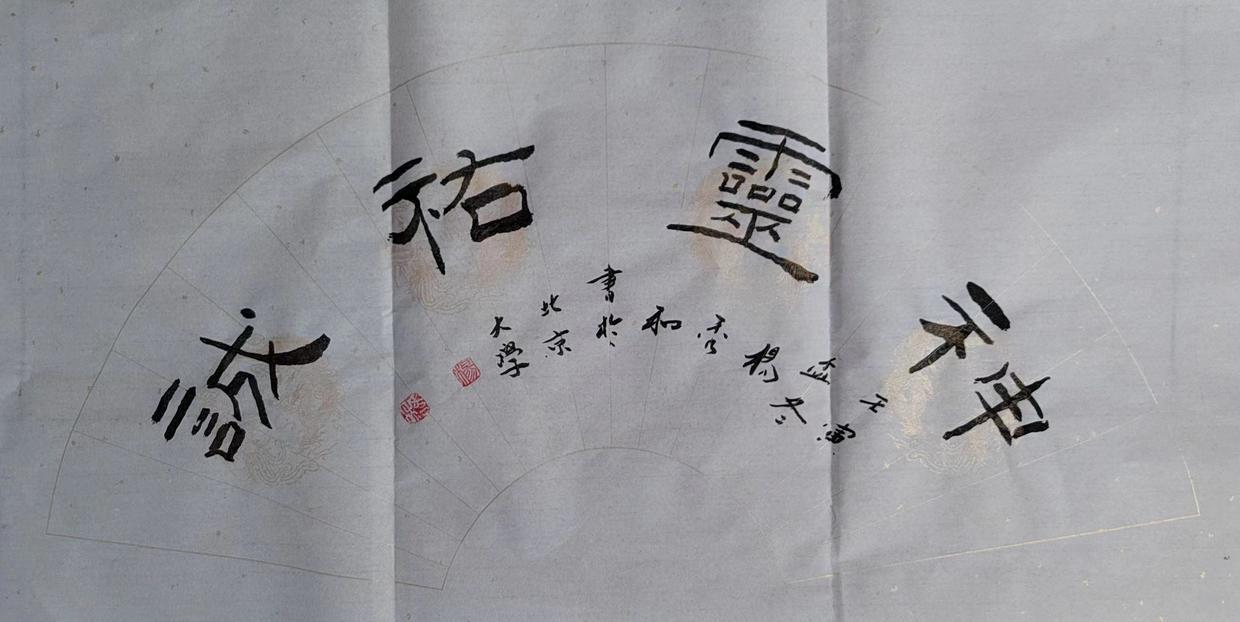 神靈祐誠
壬寅
孟冬
楊
秀
和
書於
北京
大學